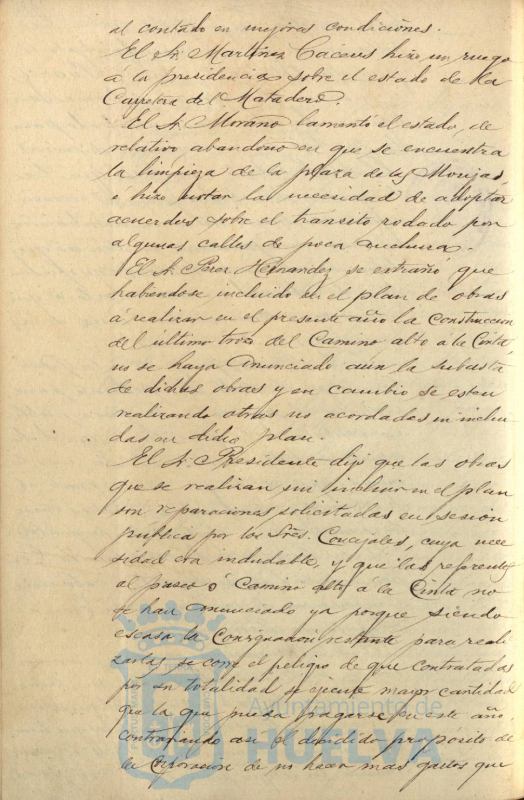 al contado en mejores condiciones.
El Sr. Martinez Caceres hizo un ruego
á la presidencia sobre el estado de la
Carretera del Matadero.
El Sr. Morano lamentó el estado, de
relativo abandono en que se encuentra
la limpieza de la plaza de las Monjas,
e hizo notar la necesidad de adoptar
acuerdos sobre el transito rodado por
algunas calles de poca anchura.
El Sr. Perez Hernandez se extrañó que
habiendose incluido en el plan de obras
á realizar en el presente año la Construccion
del último trozo del Camino alto a la Cinta,
no se haya anunciado aún la subasta
de dichas obras y en cambio se esten
realizando otras no acordadas ni inclui
das en dicho plan.
El Sr. Presidente dijo que las obras
que se realizan sin incluir en el plan
son reparaciones solicitadas en sesion
pública por los Sres. Concejales, cuya nece
sidad era indudable, y que las referentes
al paseo ó Camino alto á la Cinta no
se han anunciado ya porque siendo
escasa la Consignación restante para reali
zarlas se corre el peligro de que contratadas
por su totalidad se ejecute mayor cantidad
que la que pueda pagarse en este año,
contrariando asi el decidido proposito de
la Corporacion de no hacer mas gastos que
Ayuntamiento de
HUELVA